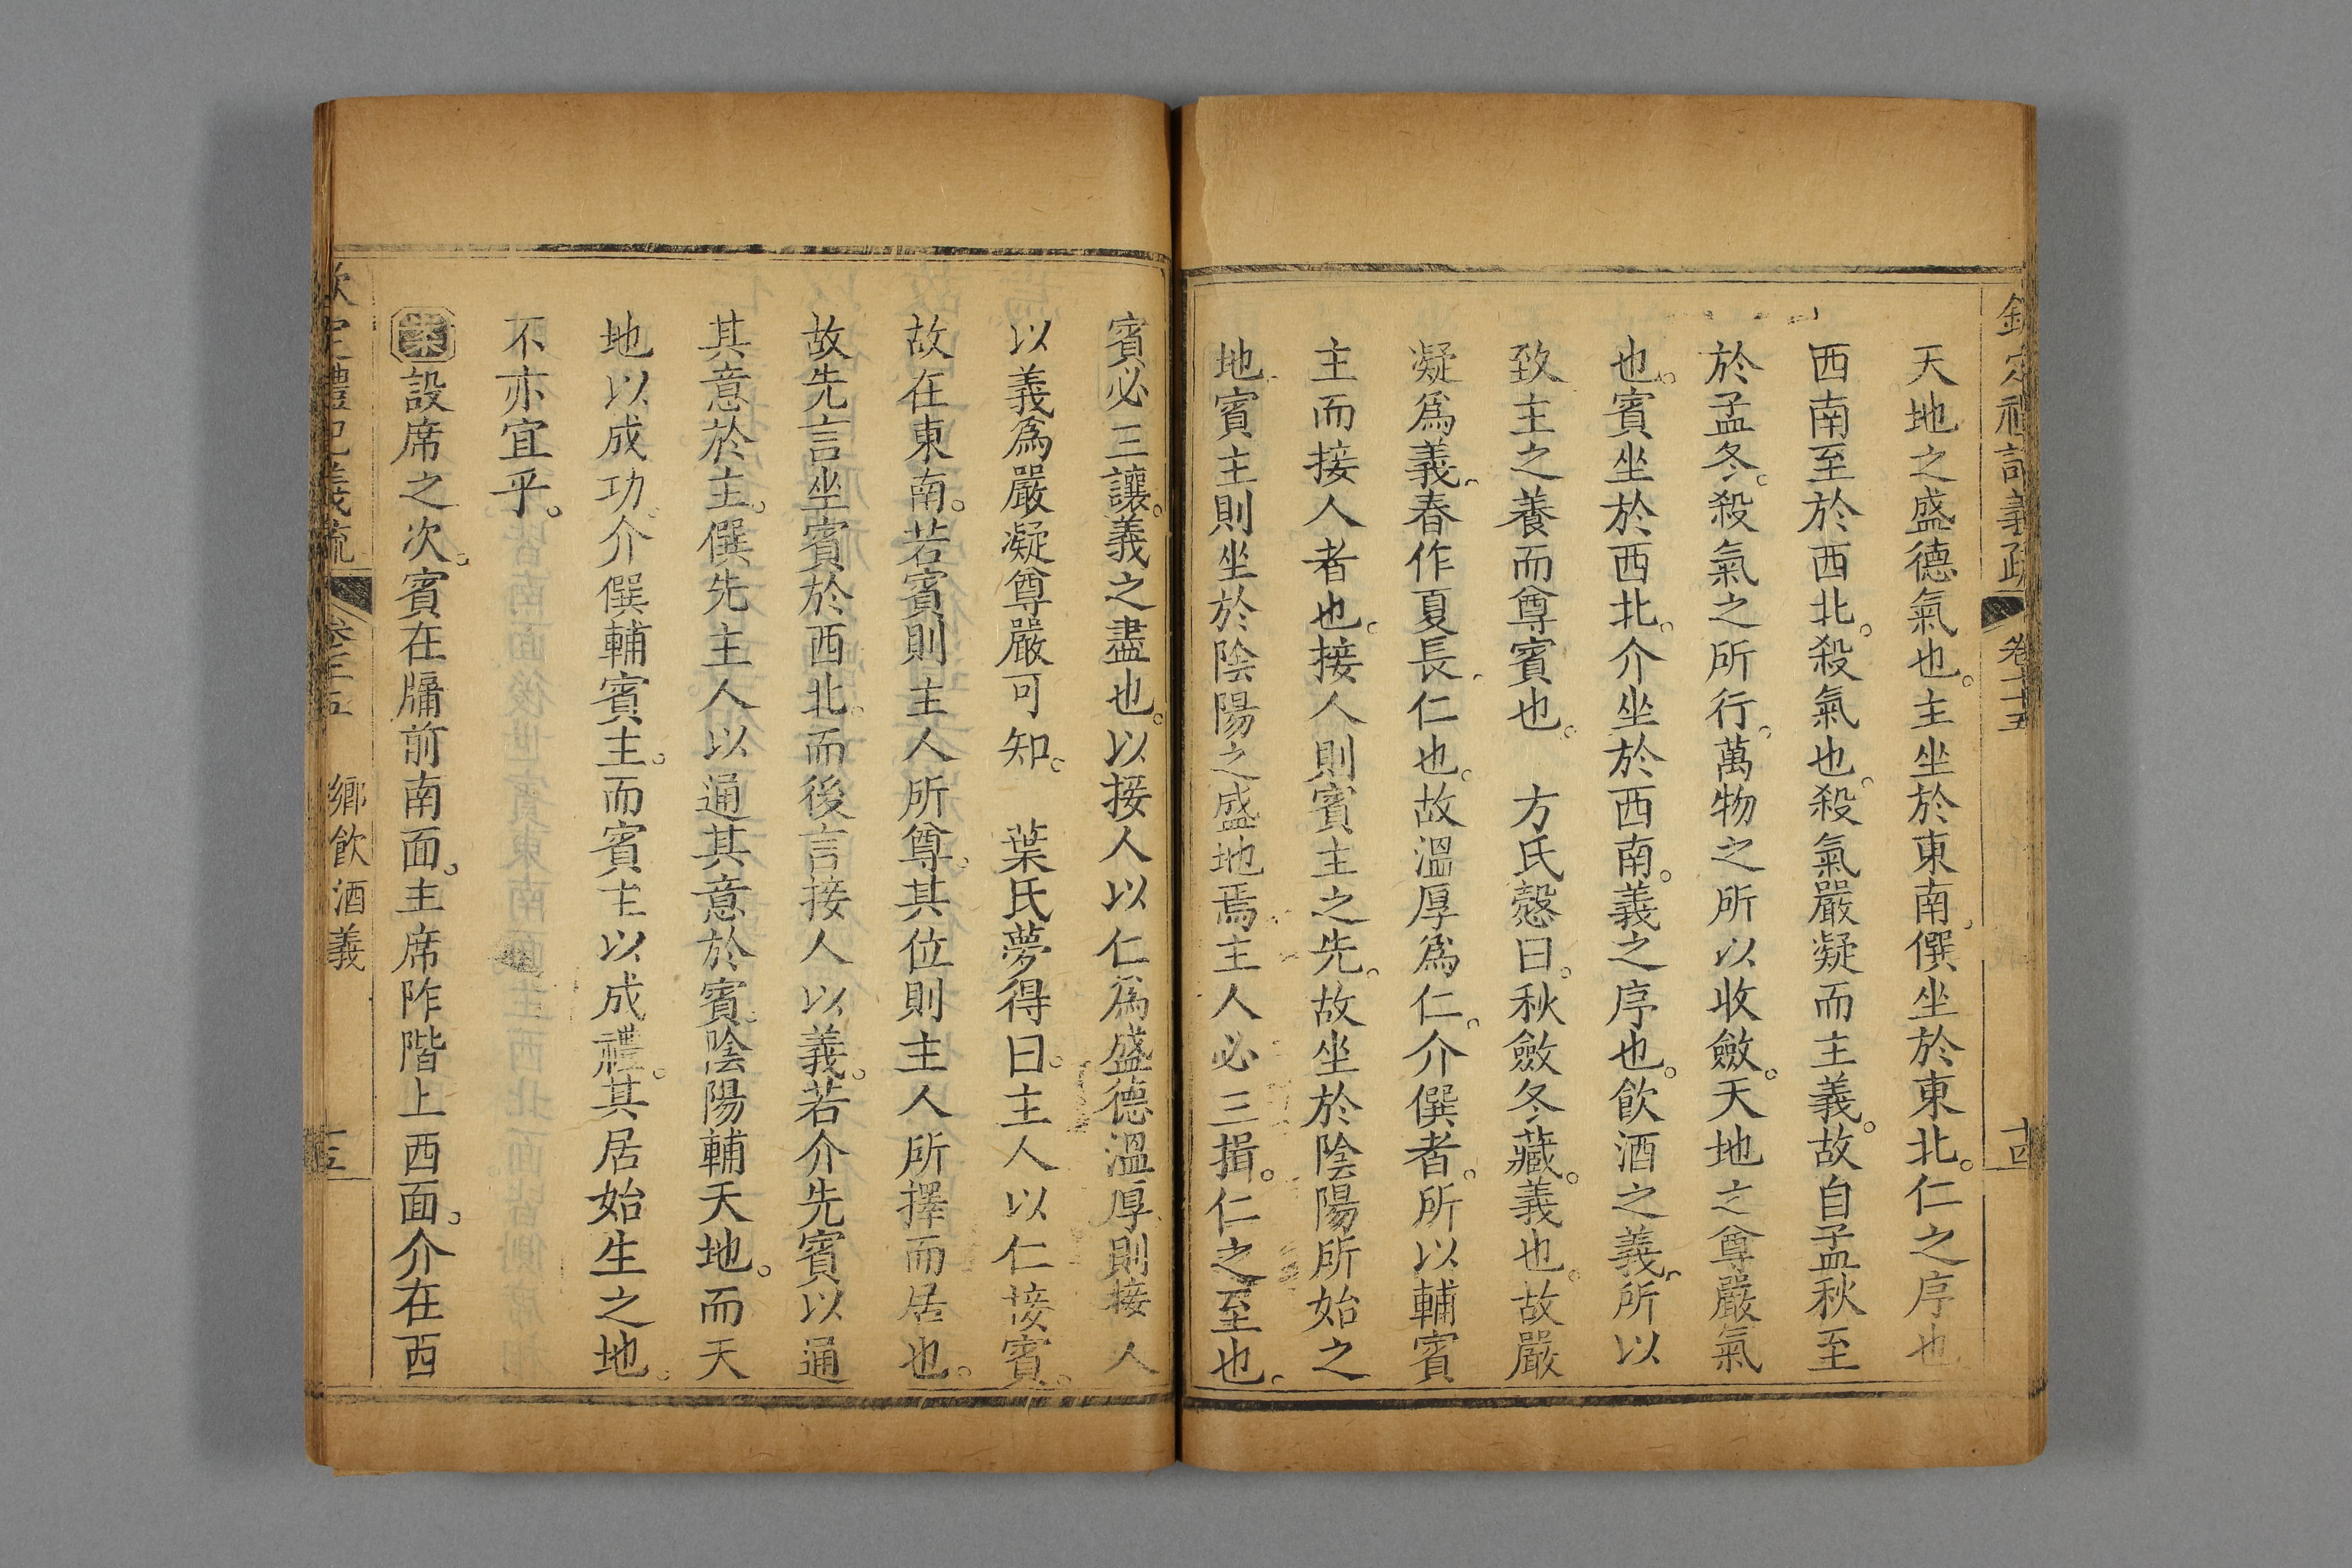 欽定禮記義疏 卷七十五 十四
天地之盛德氣也。主坐於東南。僎坐於東北。仁之序也
西南至於西北。殺氣也。殺氣嚴凝而主義。故自孟秋至
於孟冬。殺氣之所行。萬物之所以收斂。天地之尊嚴氣
也。賓坐於西北。介坐於西南。義之序也。飲酒之義。所以
致主之養而尊賓也。 方氏慤曰。秋斂冬藏。義也。故嚴
凝爲義。春作夏長。仁也。故溫厚爲仁。介僎者。所以輔賓
主而接人者也。接人則賓主之先。故坐於陰陽所始之
地賓主則坐於陰陽之盛地焉主人必三揖。仁之至也。
賓必三讓。義之盡也。以接人以仁爲盛德溫厚則接人
以義爲嚴凝尊嚴可知。 葉氏夢得曰。主人以仁接賓。
故在東南。若賓則主人所尊。其位則主人所擇而居也。
故先言坐賓於西北。而後言接人以義。若介先賓以通
其意於主。僎先主人以通其意於賓。陰陽輔天地。而天
地以成功。介僎輔賓主。而賓主以成禮。其居始生之地。
不亦宜乎。
案設席之次。賓在牖前南面。主席阼階上西面。介在西
欽定禮記義疏 鄉飲酒義